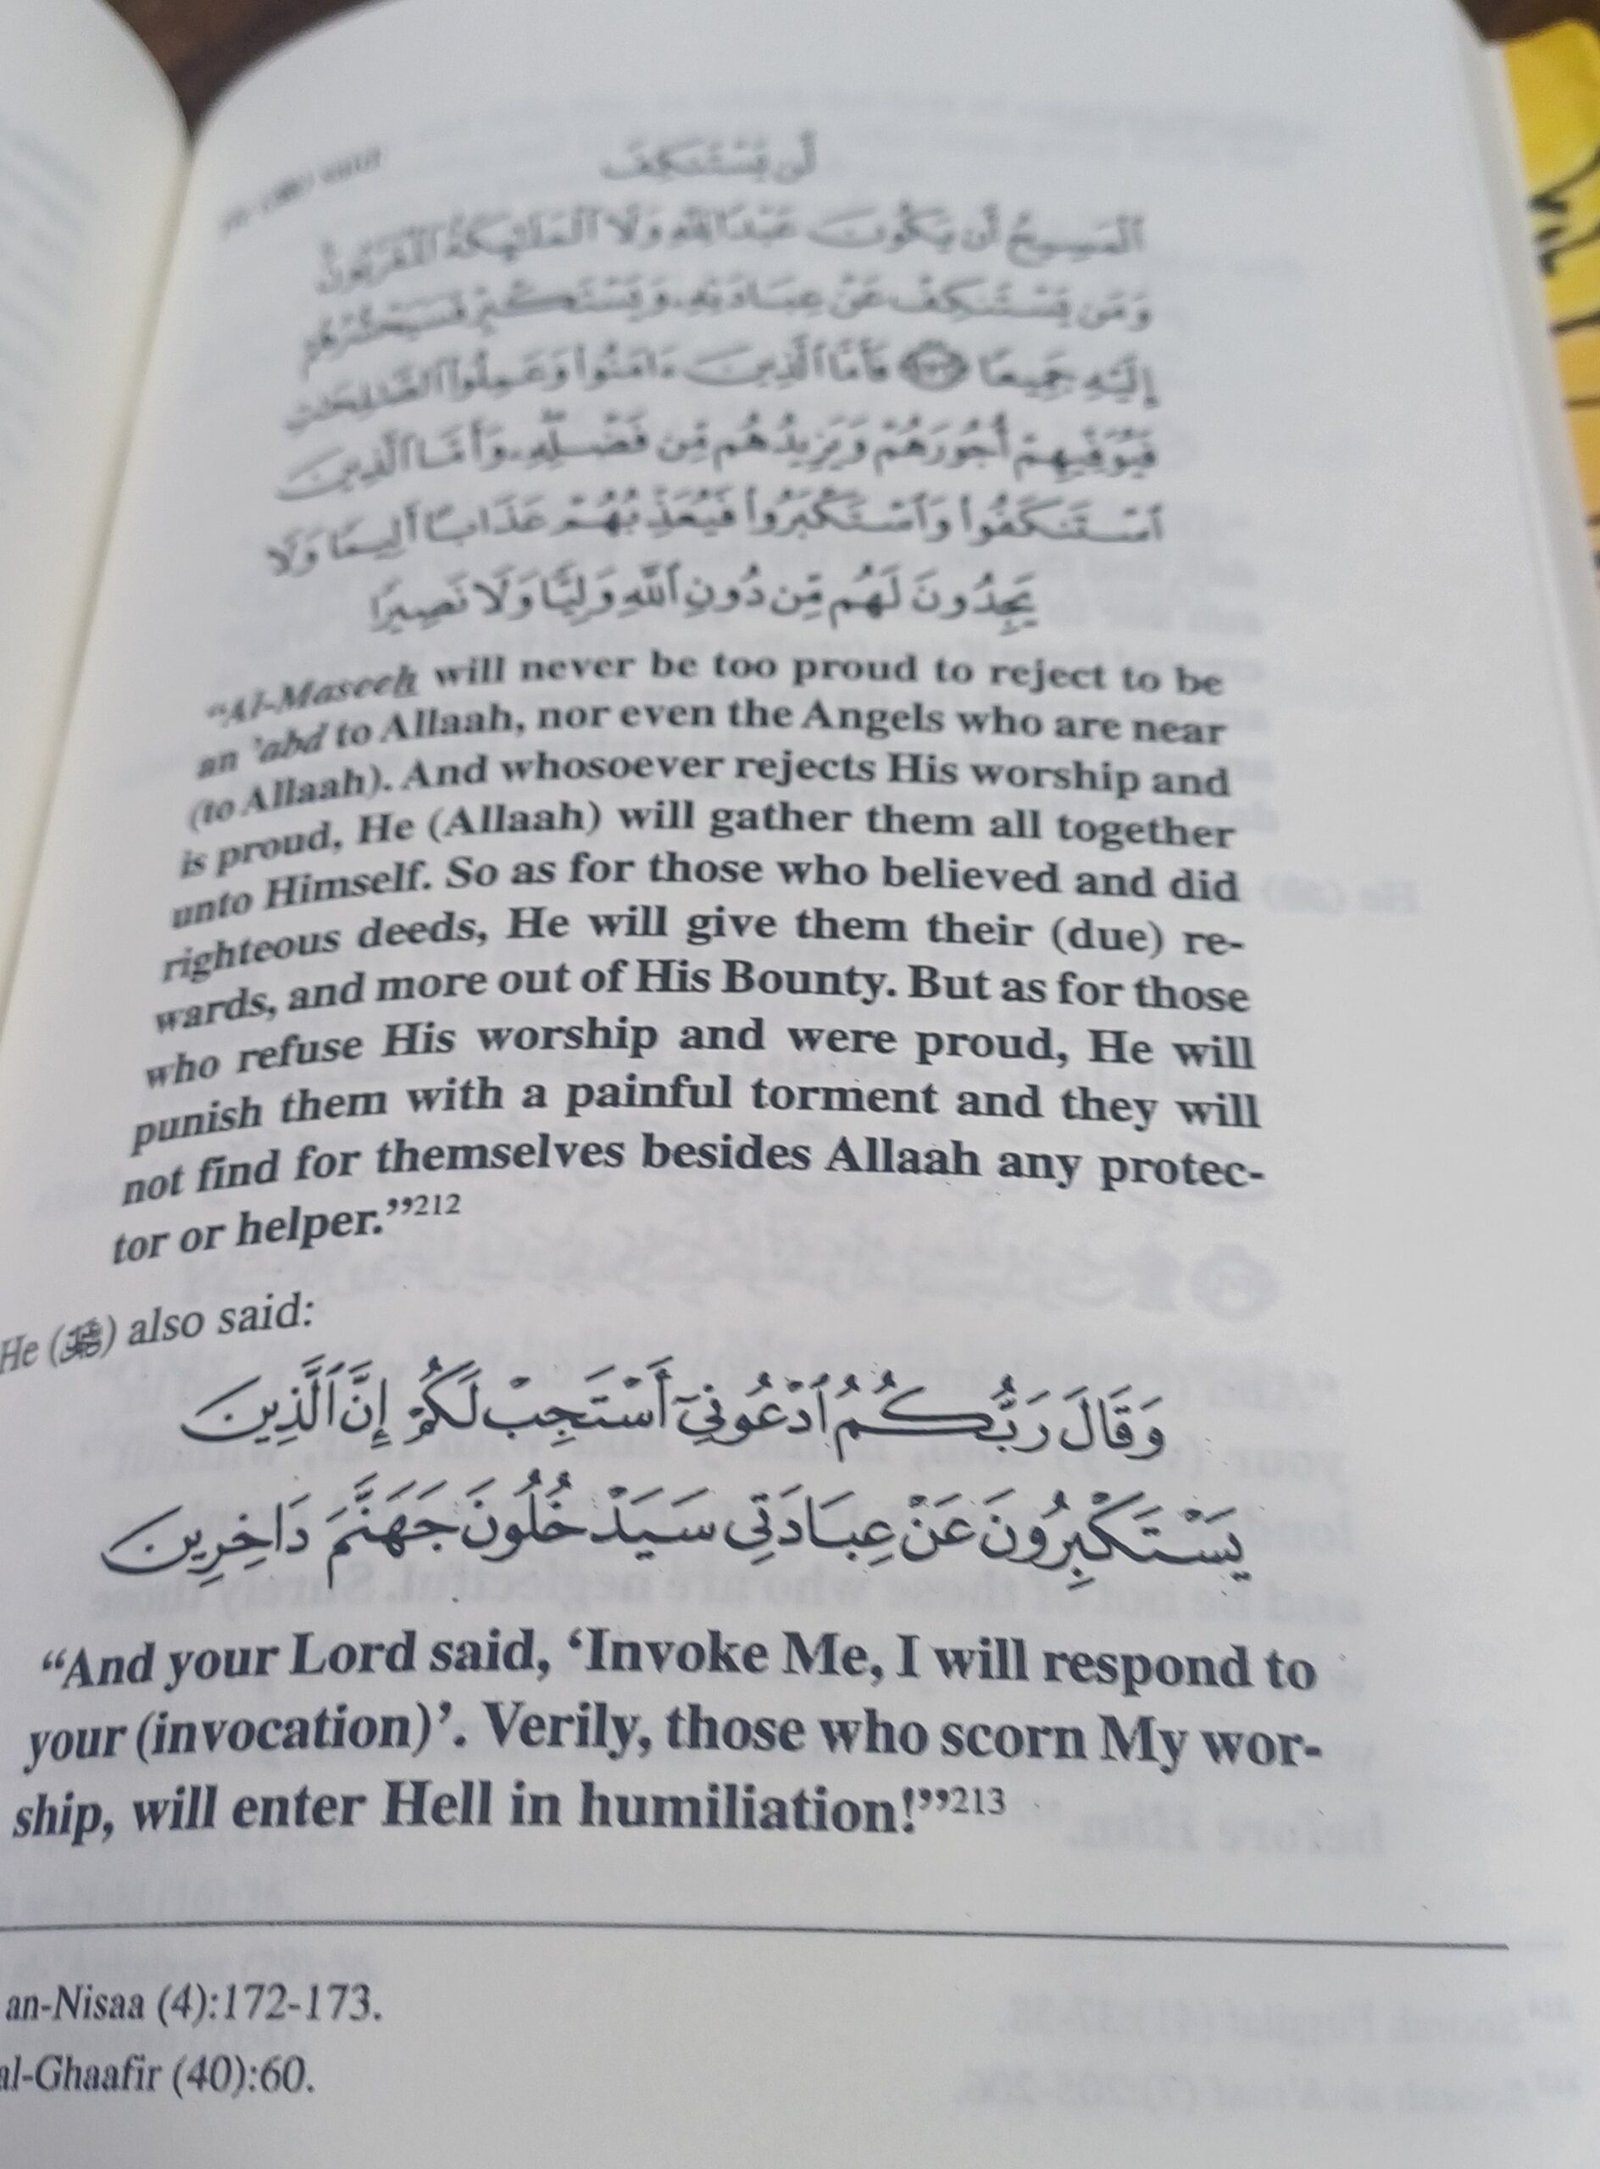 لَّن يَسْتَنكِفَ
ٱلْمَسِيحُ أَن يَكُونَ عَبْدًا لِّلَّهِ وَلَا ٱلْمَلَٰٓئِكَةُ ٱلْمُقَرَّبُونَ
وَمَن يَسْتَنكِفْ عَنْ عِبَادَتِهِۦ وَيَسْتَكْبِرْ فَسَيَحْشُرُهُمْ
إِلَيْهِ جَمِيعًا ۝ فَأَمَّا ٱلَّذِينَ ءَامَنُوا۟ وَعَمِلُوا۟ ٱلصَّٰلِحَٰتِ
فَيُوَفِّيهِمْ أُجُورَهُمْ وَيَزِيدُهُم مِّن فَضْلِهِۦ وَأَمَّا ٱلَّذِينَ
ٱسْتَنكَفُوا۟ وَٱسْتَكْبَرُوا۟ فَيُعَذِّبُهُمْ عَذَابًا أَلِيمًا وَلَا
يَجِدُونَ لَهُم مِّن دُونِ ٱللَّهِ وَلِيًّا وَلَا نَصِيرًا
“Al-Maseeh will never be too proud to reject to be
an ’abd to Allaah, nor even the Angels who are near
(to Allaah). And whosoever rejects His worship and
is proud, He (Allaah) will gather them all together
unto Himself. So as for those who believed and did
righteous deeds, He will give them their (due) re-
wards, and more out of His Bounty. But as for those
who refuse His worship and were proud, He will
punish them with a painful torment and they will
not find for themselves besides Allaah any protec-
tor or helper.”212
He () also said:
وَقَالَ رَبُّكُمُ ٱدْعُونِىٓ أَسْتَجِبْ لَكُمْ إِنَّ ٱلَّذِينَ
يَسْتَكْبِرُونَ عَنْ عِبَادَتِى سَيَدْخُلُونَ جَهَنَّمَ دَاخِرِينَ
“And your Lord said, ‘Invoke Me, I will respond to
your (invocation)’. Verily, those who scorn My wor-
ship, will enter Hell in humiliation!”213
an-Nisaa (4):172-173.
al-Ghaafir (40):60.